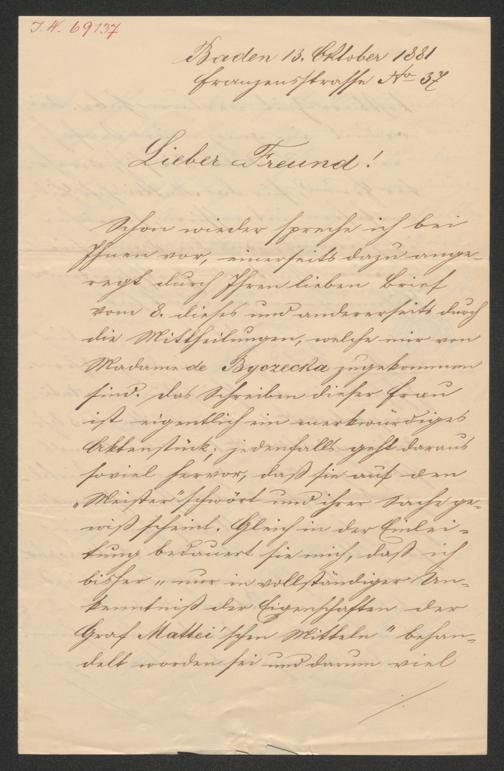 I.N. 69137
Baden 13. Oktober 1881
Franzensstrasse No 37
Lieber Freund!
Schon wieder spreche ich bei
Ihnen vor, einerseits dazu ange-
regt durch Ihren lieben Brief
vom 8. dieses und andererseits durch
die Mittheilungen, welche mir von
Madame de Byczecka zugekommen
sind. Das Schreiben dieser Frau
ist eigentlich ein merkwürdiges
Aktenstück; jedenfalls geht daraus
soviel hervor, daß sie auf den
„Meister“ schwört und ihrer Sache ge-
wiß scheint. Gleich in der Einlei-
tung bedauert sie mich, daß ich
bisher „nur in vollständiger Un-
kenntniß der Eigenschaften der
Graf Mattei'schen Mitteln“ behan-
delt worden sei und darum viel